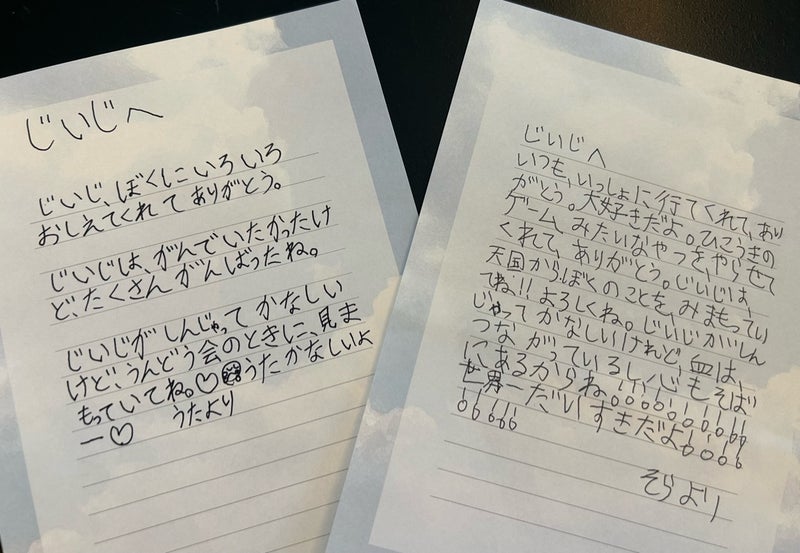 じいじへ
じいじ、ぼくにいろいろ
おしえてくれてありがとう。
じいじは、がんでいたかったけ
ど、たくさんがんばったね。
じいじがしんじゃってかなしい
けど、うんどう会のときに、見ま
もっていてね。♡うたかなしいよ
ー♡ うたより
じいじへ
いつも、いっしょに行てくれて、あり
がとう。大好きだよ。ひこうきの
ゲームみたいなやつを、やらせて
くれて、ありがとう。じいじは、
天国からぼくのことを、みまもってい
てね!!よろしくね。じいじがしん
じゃってかなしいけれど、血は、
つながっているし、心もそば
にあるからね。
世界一だいすきだよ
そらより